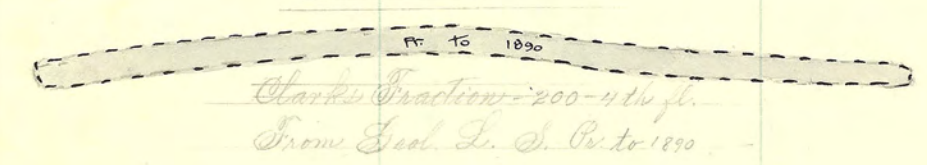 Pr. to 1890
Clarks Fraction - 200 - 4th fl.
From Geol. L. S. Pr. to 1890